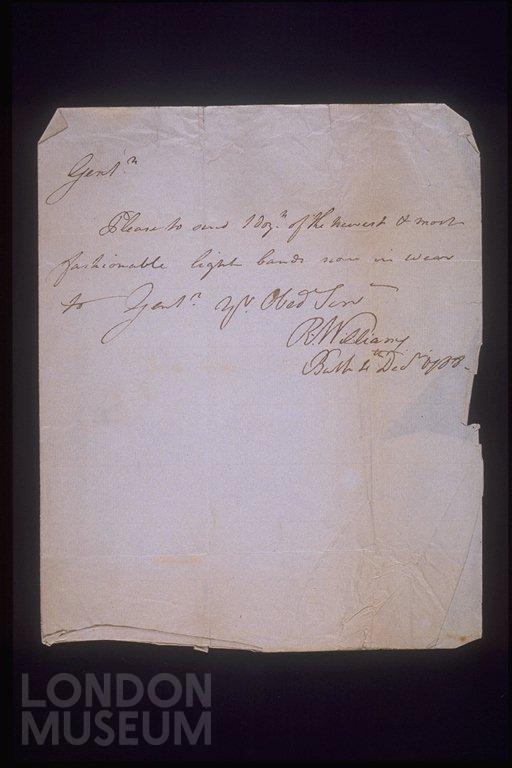 Gentn.
Please to send 1 dozn. of the newest & most
fashionable light bands now in wear
to Gentn. Yr. Obed Servt
R. Williams
Bath 4th Decr. 1788.
LONDON
MUSEUM